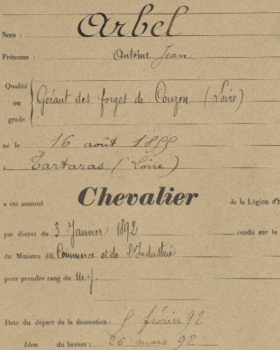 Nom : Arbel
Prénoms : Antoine Jean
Qualité
ou Gérant des forges de Couzon (Loire)
grade
né le 16 août 1855
à Tartaras (Loire)
Chevalier
a été nommé de la Légion d'H
par décret du 3 Janvier 1892 rendu sur le
du Ministre du Commerce et de l'Industrie
pour prendre rang du
Date du départ de la décoration : 5 février 92
Idem du brevet : 26 mars 92